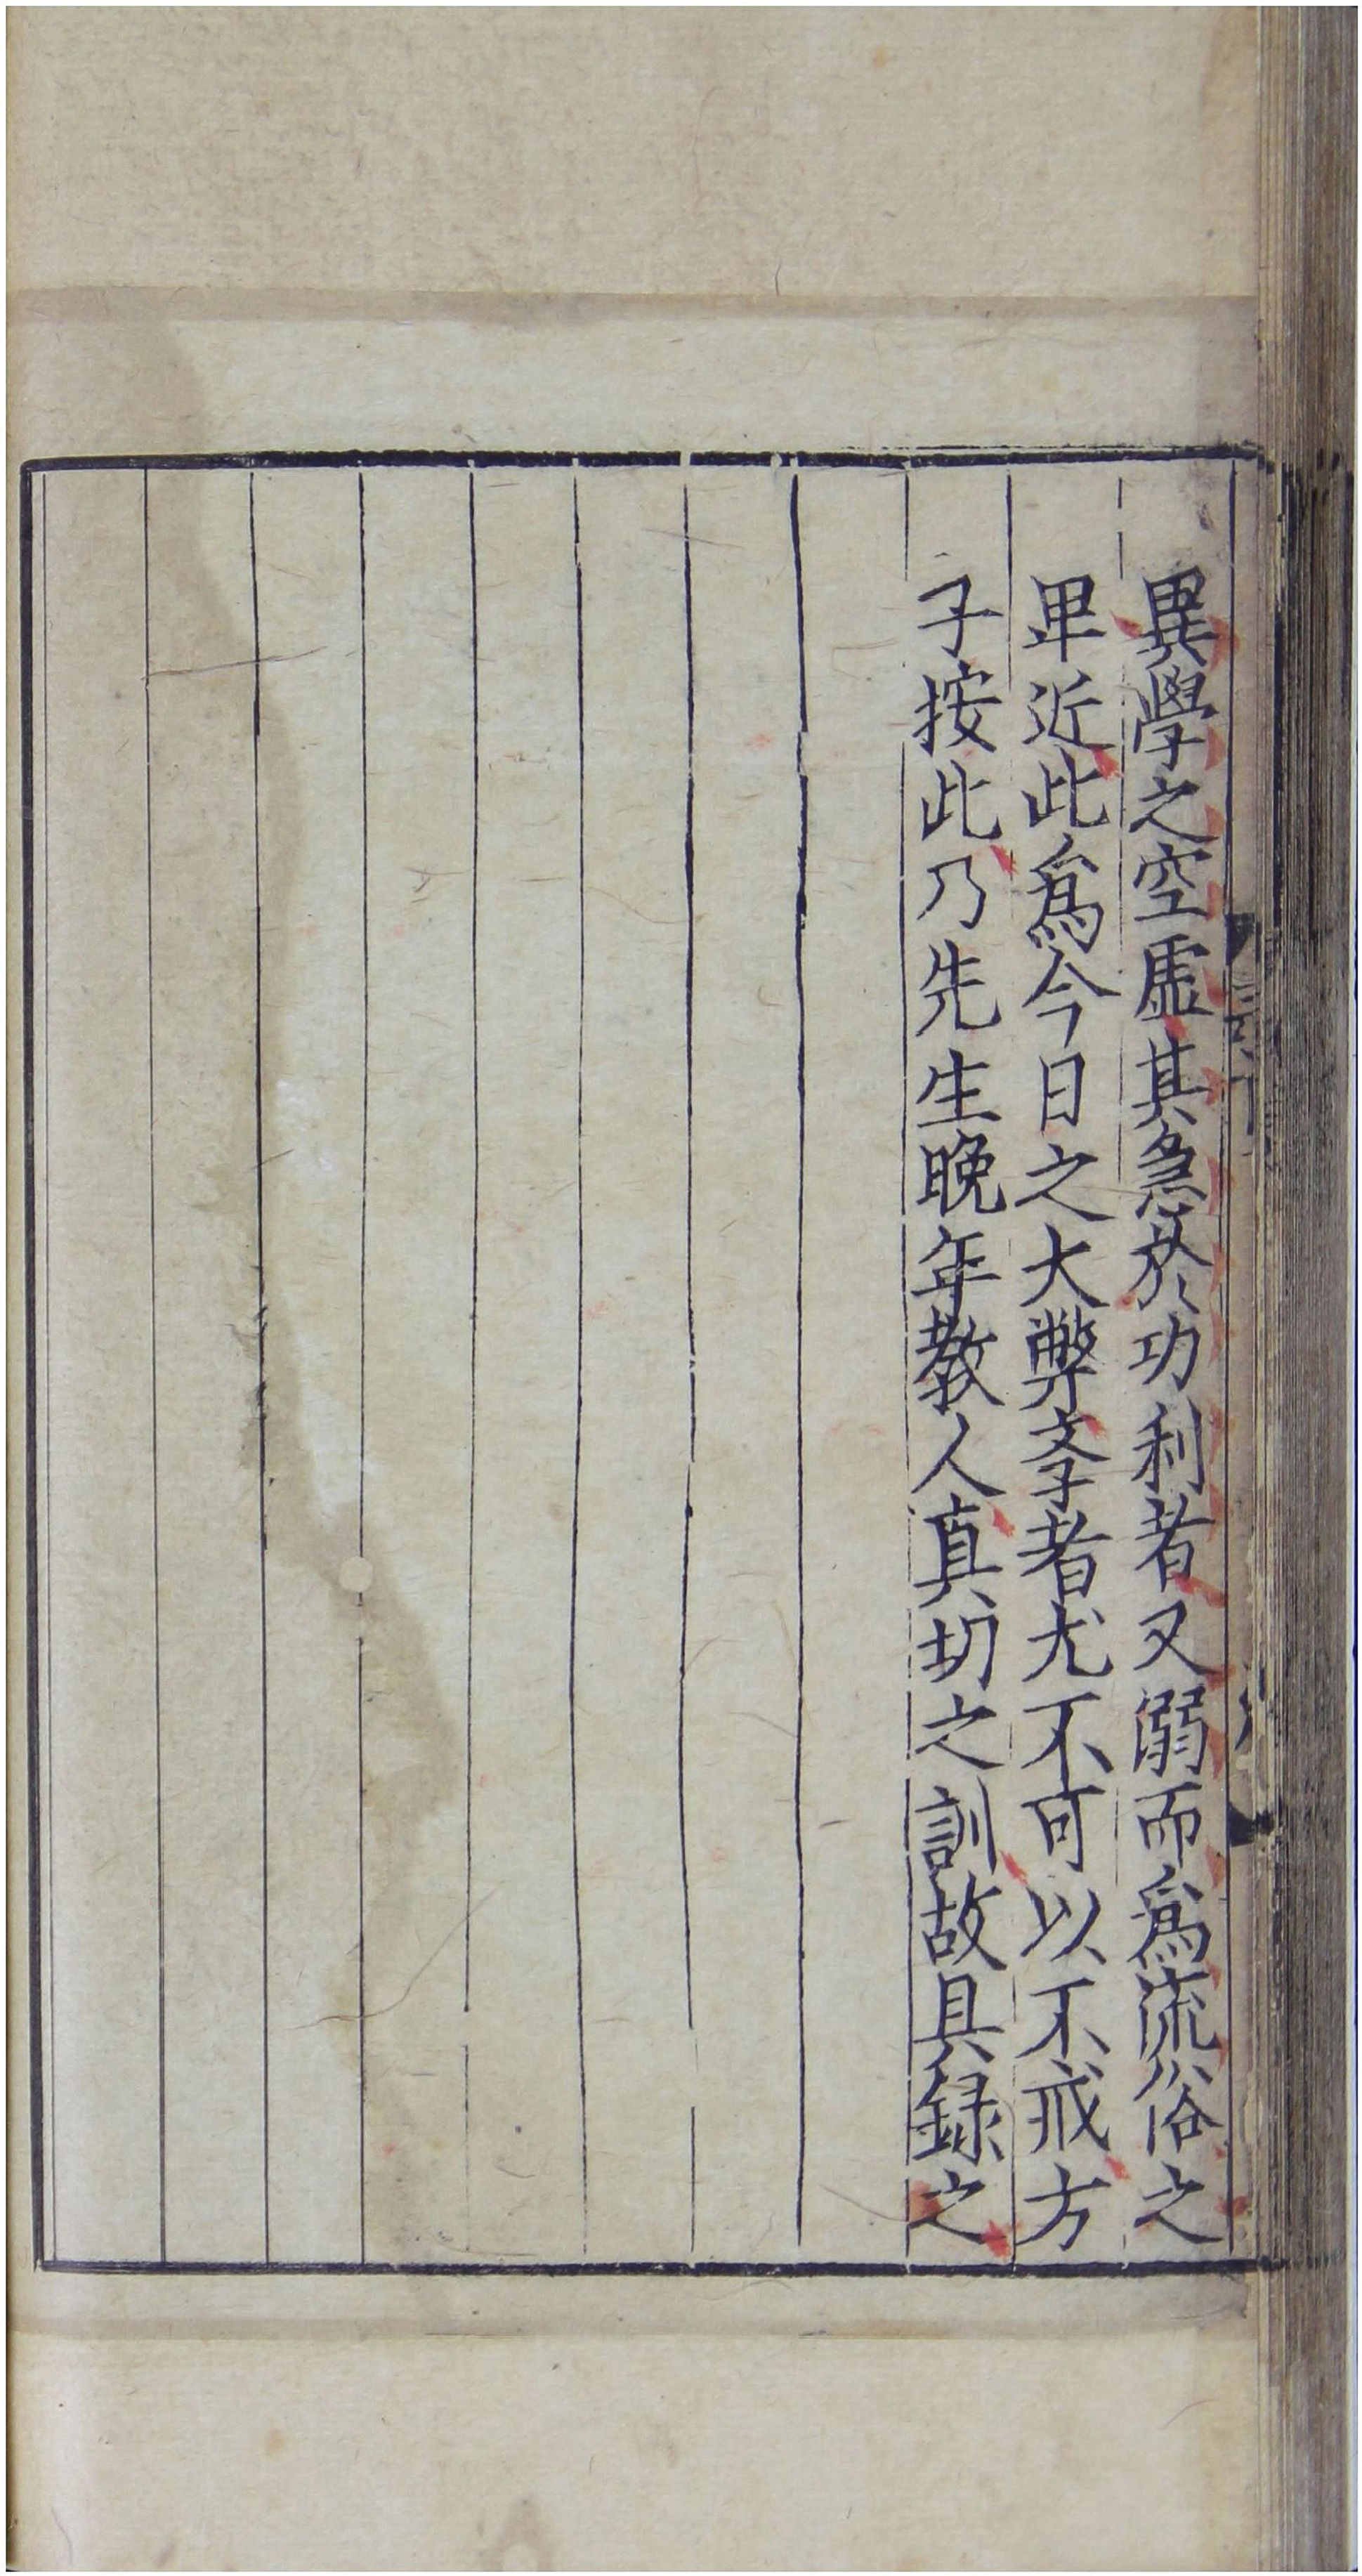 異學之空虛其急於功利者又溺而爲流俗之
卑近此爲今日之大弊斈者尤不可以不戒方
子按此乃先生晚年教人真切之訓故具録之